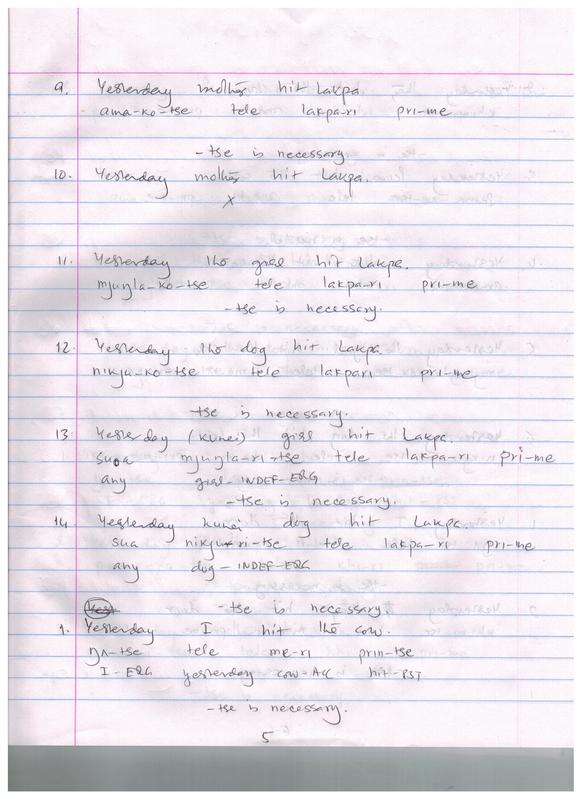 9. Yesterday mother hit Lakpa.
ama-ko-tse tele lakpa-ri pri-me
-tse is necessary.
10. Yesterday mother hit Lakpa.
X
11. Yesterday the girl hit Lakpa.
mjuŋla-ko-tse tele lakpa-ri pri-me
-tse is necessary.
12. Yesterday the dog hit Lakpa.
nikju-ko-tse tele lakpari pri-me
-tse is necessary.
13. Yesterday (kunei) girl hit Lakpa.
sua mjuŋla-ri-tse tele lakpa-ri pri-me
any girl-INDEF-ERG
-tse is necessary.
14. Yesterday kunei dog hit Lakpa.
sua nikju-ri-tse tele lakpa-ri pri-me
any dog-INDEF-ERG
-tse is necessary.
1. Yesterday I hit the cow.
ŋʌ-tse tele me-ri prin-tse
I-ERG yesterday cow-ACC hit-PST
-tse is necessary.
5